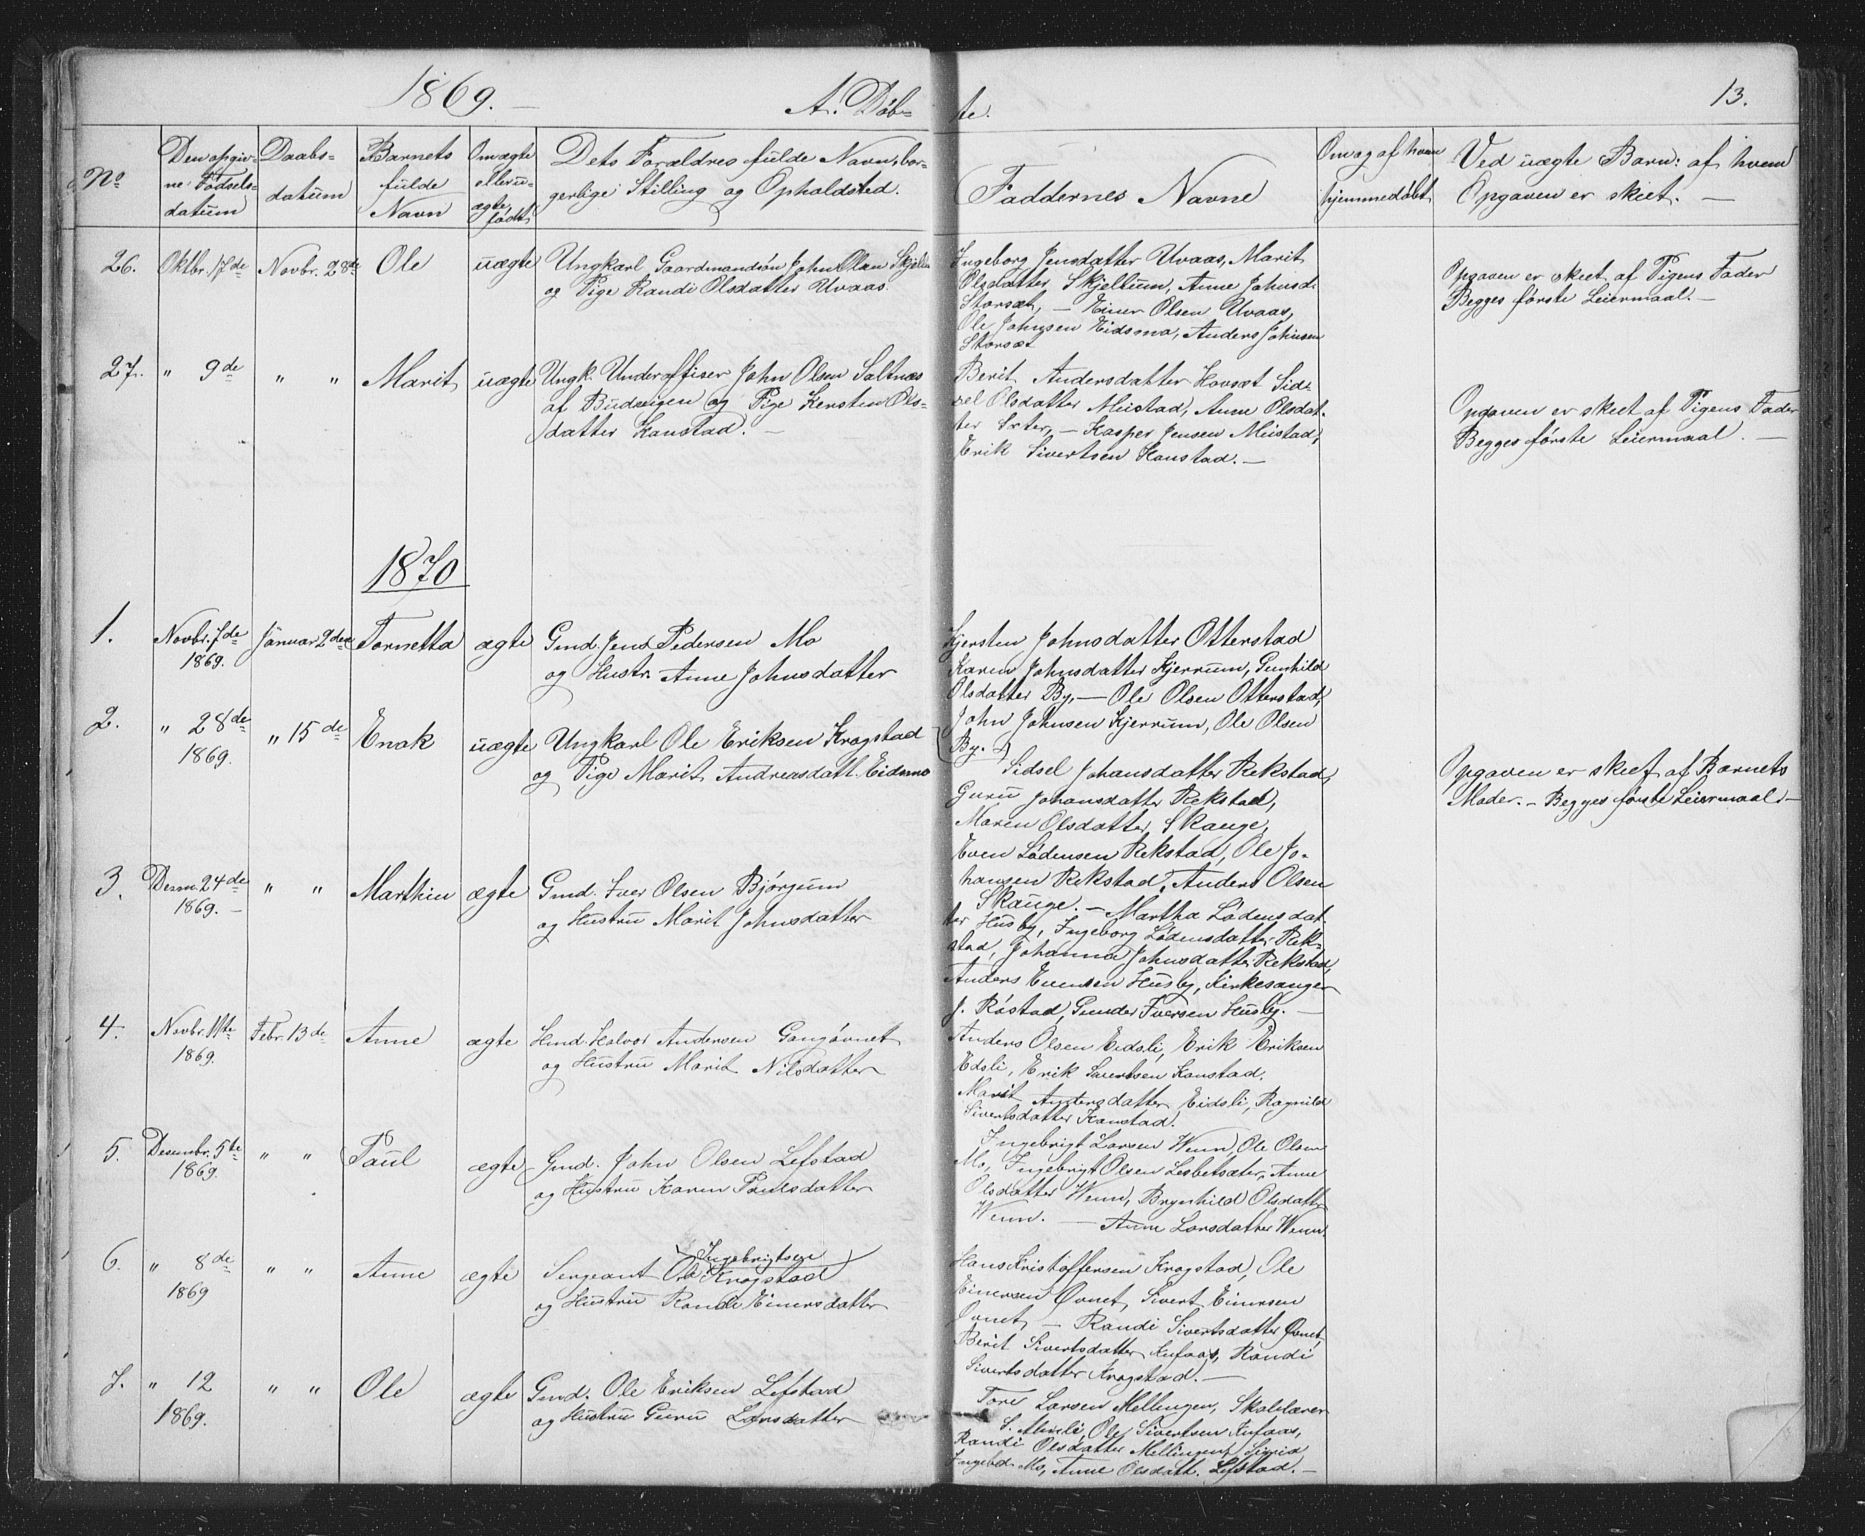 1869. — A. Døb-
te. 13.
No
Den opgiv-
ne Fødsels-
datum
Daabs-
datum
Barnets
fulde
Navn
Om ægte
eller u-
ægte
født
Dets Forældres fulde Navn, bor-
gerlige Stilling og Opholdsted.
Faddernes Navne
Om og af hvem
hjemmedøbt
Ved uægte Barn: af hvem
Opgaven er skeet. —
26. Oktbr. 17de Novbr. 28de Ole uægte Ungkarl Gaardmandsøn John Olsen
og Pige Randi Olsdatter Uvaas.
Ingeborg Jensdatter Uvaas, Marit
Olsdatter Skjellium, Anne Johnsd.
Storsæt, — Einer Olsen Uvaas,
Ole Johnsen Eidsmo, Anders Johnsen
Storsæt
Opgaven er skeet af Pigens Fader
Begges første Leiermaal. —
27. " 9de " " Marit uægte Ungk. Underoffiser John Olsen Saltnæs
af Budvigen og Pige Kersten Ols-
datter Kanstad. —
Berit Andersdatter Hovsæt Sid-
sel Olsdatter Meistad, Anne Olsdat-
ter Sæter, — Kasper Jensen Meistad,
Erik Sivertsen Kanstad. —
Opgaven er skeet af Pigens Fader
Begges første Leiermaal. —
1870
1. Novbr. 7de
1869. Januar 2den Tornetta ægte Gmd. Jens Pedersen Mo
og Hustr. Anne Johnsdatter
Kjersten Johnsdatter Otterstad
Karen Johnsdatter Kjerrum, Gunhild
Olsdatter By, — Ole Olsen Otterstad,
John Johnsen Kjerrum, Ole Olsen
By.
2. " 28de
1869. " 15de Enok uægte Ungkarl Ole Eriksen Krogstad
og Pige Marit Andreasdatt. Eidsmo
Sidsel Johansdatter Rekstad,
Guru Johansdatter Rekstad,
Maren Olsdatter Skauge,
Even Lødensen Rekstad, Ole Jo-
hansen Rekstad, Anders Olsen
Skauge. —
Opgaven er skeet af Barnets
Moder. — Begges første Leiermaal. —
3. Desm. 24de
1869. — " " Marthin ægte Gmd. Iver Olsen Bjørgum
og Hustru Marit Johnsdatter
Martha Lødensdat-
ter Husby, Ingeborg Lødensdatter Rek-
stad, Johanna Johnsdatter Rekstad,
Anders Evensen Husby, Kirkesanger
J. Røstad, Gunder Iversen Husby. —
4. Novbr. 11te
1869. Febr. 13de Anne ægte Hmd. Halvor Andersen Gangøvnet
og Hustru Marit Nilsdatter
Anders Olsen Eidsli, Erik Eriksen
Edsli, Erik Sivertsen Kanstad.
Marit Andersdatter Eidsli, Ragnild
Sivertsdatter Kanstad.
5. Desembr. 5te
1869. " " Paul ægte Gmd. John Olsen Lefstad
og Hustru Karen Paulsdatter
Ingebrigt Larsen Wenn, Ole Olsen
Mo, Ingebrigt Olsen Lesbetsæter, Anne
Olsdatter Wenn, Brynhild Olsdatt.
Wenn. — Anne Larsdatter Wenn
6. " 8de
1869 " " Anne ægte Sergeant Ole Ingebrigtsen Krogstad
og Hustru Randi Einersdatter
Hans Kristoffersen Krogstad, Ole
Einersen Øvnet, Sivert Einersen
Øvnet — Randi Sivertsdatter Øvnet,
Berit Sivertsdatter Kufaas, Randi
Sivertsdatter Krogstad. —
7. " 12
1869. " " Ole ægte Gmd. Ole Eriksen Lefstad
og Hustru Guru Larsdatter
Tore Larsen Mellingen, Skolelærer
S. Ole Sivertsen Kufaas,
Randi Olsdatter Mellingen, Sigrid
Mo, Anne Olsdatt. Lefstad. —